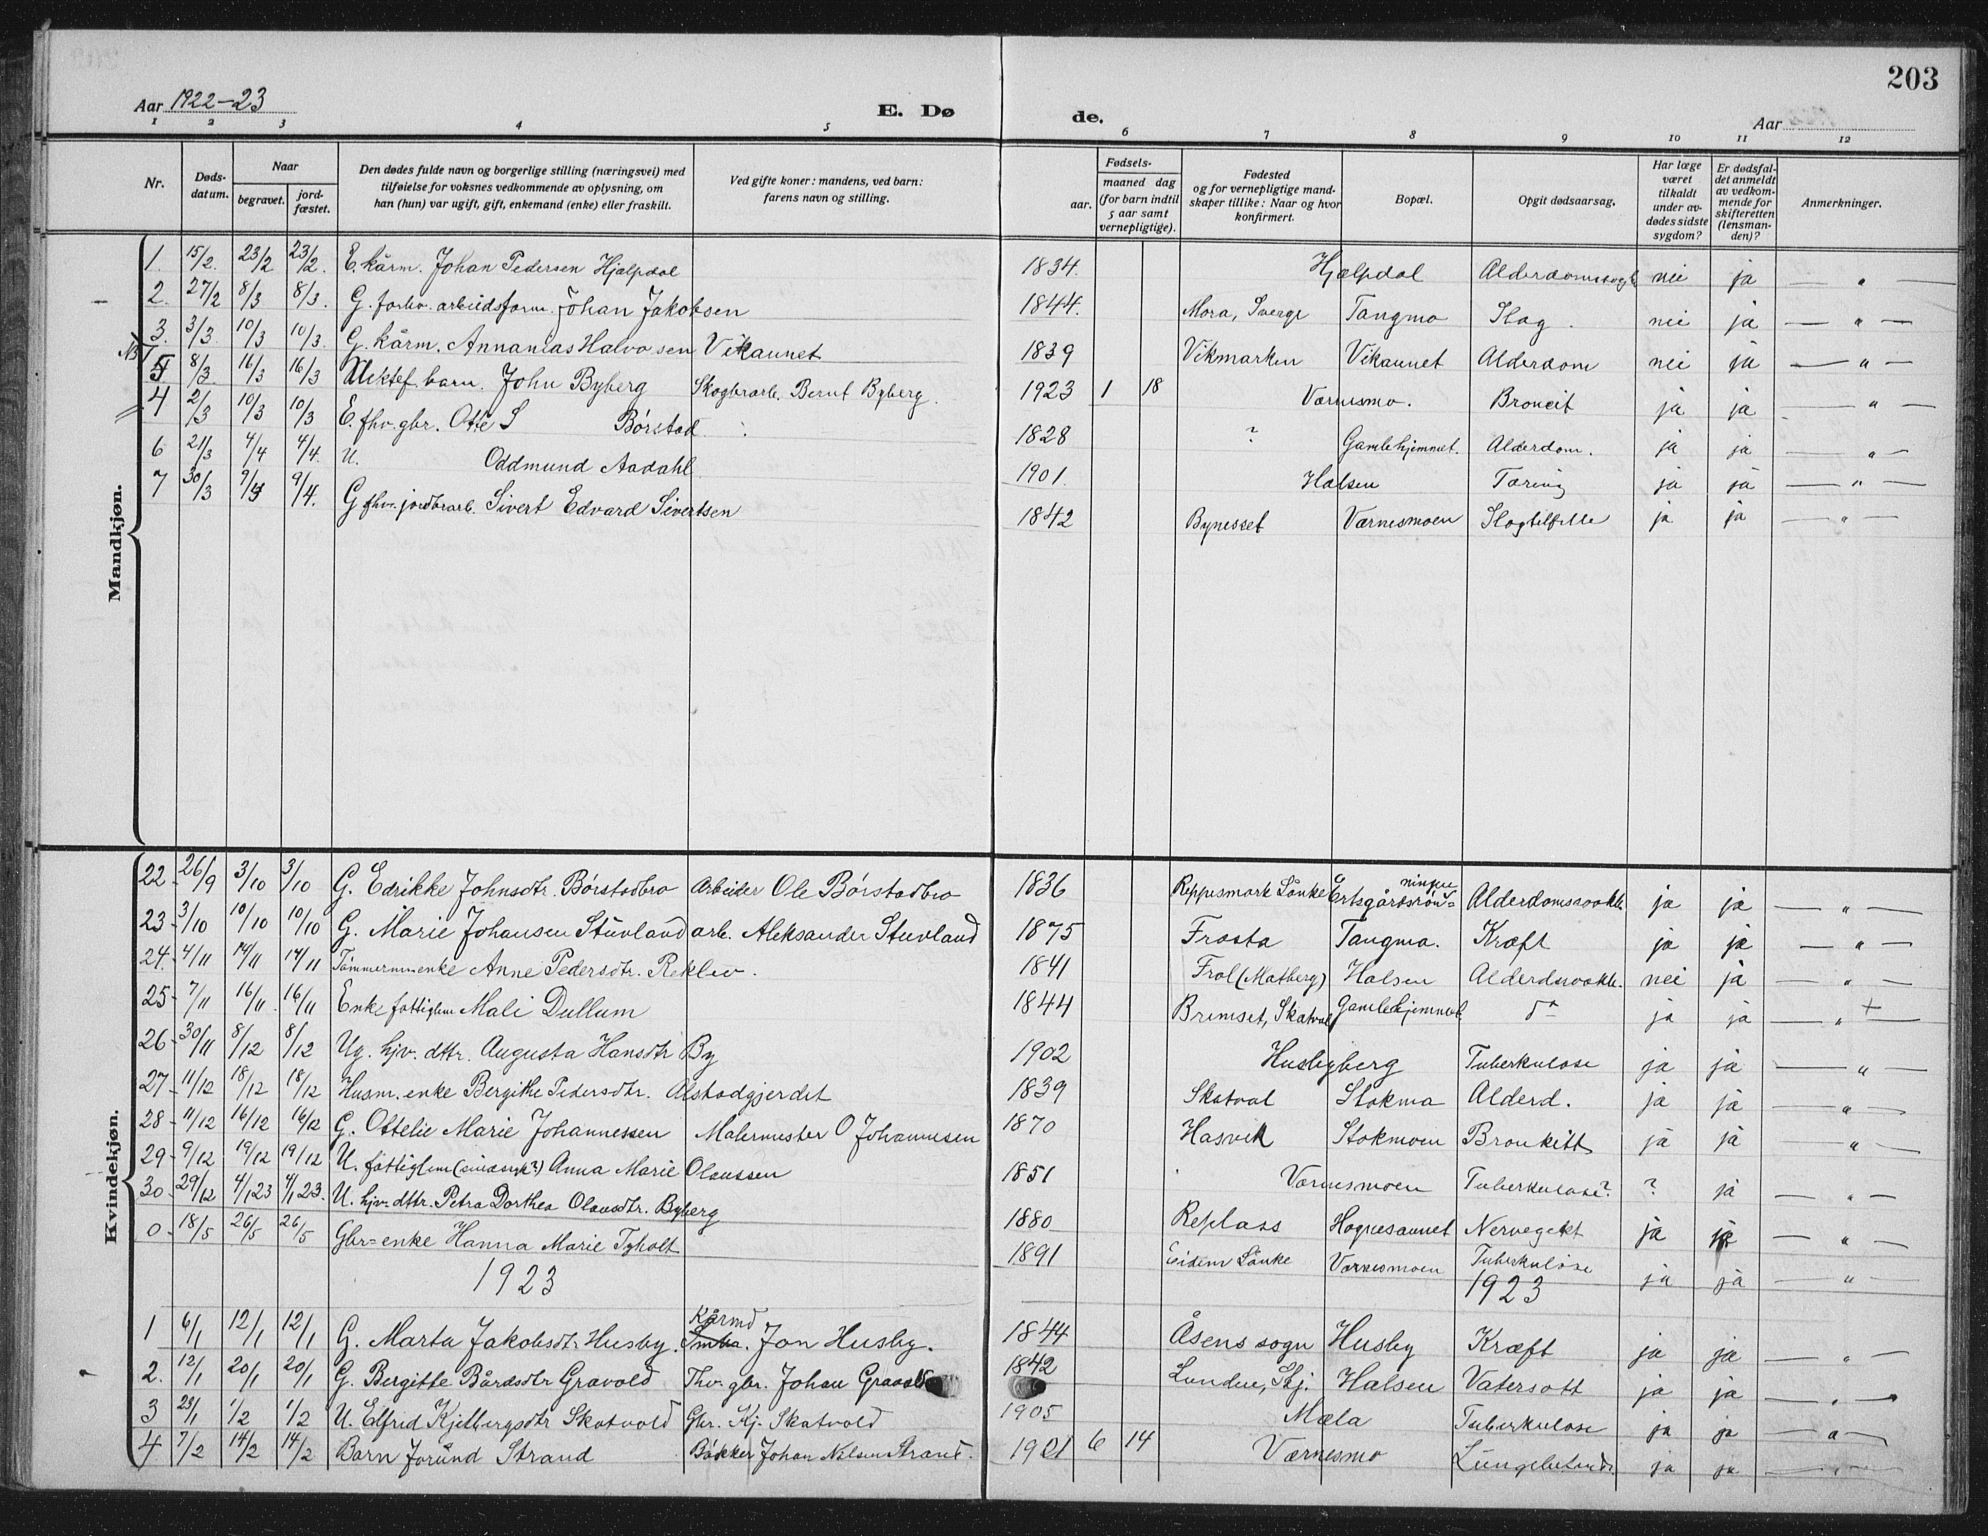 203
Aar 1922-23 E. Dø de. Aar
1 2 3 4 5 6 7 8 9 10 11 12
Nr. Døds-datum. Naar begravet. jord-fæstet. Den dødes fulde navn og borgerlige stilling (næringsvei) med tilføielse for voksnes vedkommende av oplysning, om han (hun) var ugift, gift, enkemand (enke) eller fraskilt. Ved gifte koner: mandens, ved barn: farens navn og stilling. Fødsels- aar. maaned dag (for barn indtil 5 aar samt vernepligtige). Fødested og for vernepligtige mand-skaper tillike: Naar og hvor konfirmert. Bopæl. Opgit dødsaarsag. Har læge været tilkaldt under av-dødes sidste sygdom? Er dødsfal-det anmeldt av vedkom-mende for skifteretten (lensman-den)? Anmerkninger.
Mandkjøn.
1. 15/2. 23/2 23/2. E. kårm. Johan Pedersen Hjelpdal 1834. Hjelpdal nei ja — " —
2. 27/2 8/3 8/3. G. forhv. arbeidsform. Johan Jakobsen 1844. Mora, Sverge Tangmo Slag. nei ja — " —
3. 3/3 10/3 10/3. G. kårm. Annanias Halvosen Vikaunet 1839 Vikmarken Vikaunet Alderdom nei ja — " —
5 8/3 16/3 16/3 Uektef. barn. John Byberg Skogbrarb. Bernt Byberg. 1923 1 18 Værnesmo. Broncit ja ja — " —
4 2/3 10/3 10/3 E. fhv. gbr. Otte S Børstad 1828 ? Gamlehjemmet. Alderdom. ja ja — " —
6 21/3 4/4 4/4. U. Oddmund Aadahl 1901. Halsen Tæring ja ja — " —
7 30/3 9/4 9/4. G fhv. jordbrarb. Sivert Edvard Sivertsen 1842 Bynesset Værnesmoen Slagtilfelle ja ja — " —
Kvindekjøn.
22 26/9 3/10 3/10 G. Edrikke Johnsdtr. Børstadbro Arbeider Ole Børstadbro 1836 Reppesmark Lånke Ertsgårtsrönningen Alderdomssvakh. ja ja — " —
23 3/10 10/10 10/10 G. Marie Johansen Stuvland arb. Aleksander Stuvland 1875 Frosta Tangmo. Kræft ja ja — " —
24. 4/11 14/11 14/11 Tømmermenke Anne Pedersdtr. Reklev. 1841 Frol (Matberg) Halsen Alderdsvakh. nei ja — " —
25 7/11 16/11 16/11 Enke fattiglem Mali Dullum 1844 Bremset, Skatval Gamlehjemmet do ja ja — " —
26 30/11 8/12 8/12 Ug. hjv. dttr. Augusta Hansdtr By 1902 Husbyberg Tuberkulose ja ja — " —
27 11/12 18/12 18/12 Husm. enke Bergithe Pedersdtr. Alstadgjerdet 1839 Skatval Stokma Alderd. ja ja — " —
28 11/12 16/12 16/12 G. Ottelie Marie Johannessen Malermester O Johannesen 1870 Hasvik Stokmoen Bronkitt ja ja — " —
29 9/12 19/12 19/12 U. fattiglem (sindssyk?) Anna Marie Olaussen 1851 Værnesmoen Tuberkulose? ? ja — " —
30 29/12 4/1 23 4/1 23. U. hjv. dttr. Petra Dorthea Olausdtr. Byberg 1880 Replass Hognesaunet Nervegikt ja ja — " —
0 18/5 26/5 26/5 Gbr=enke Hanna Marie Tyholt 1891 Eidem Lånke Værnesmoen Tuberkulose ja ja — " —
1923 1923
1 6/1 12/1 12/1 G. Marta Jakobsdtr Husby. Kårmd Jon Husby. 1844 Åsens sogn Husby Kræft ja ja — " —
2. 12/1 20/1 20/1 G. Bergitte Bårdsdtr Gravold Fhv. gbr. Johan 1842 Halsen Vatersott ja ja — " —
3 23/1 1/2 1/2 U. Elfrid Kjelbergsdtr Skatvold Gbr. Kj. Skatvold 1905 Mæla Tuberkulose ja ja — " —
4 7/2 14/2 14/2 Barn Joründ Strand Bakker Johan Nilsen Strand. 1921 6 14 Værnesmo ja ja — " —